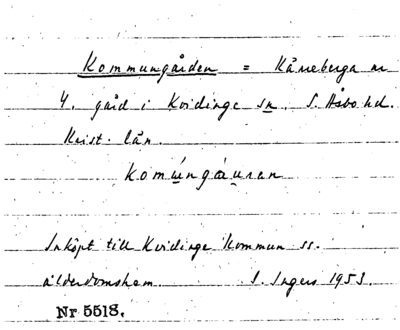 Kommungården = Kånneberga nr
4. gård i Kvidinge sn. S. Åsbo hd.
Krist. län.
komúngáuran
Inköpt till Kvidinge kommun ss.
ålderdomshem. I. Ingers 1953.
Nr 5518.